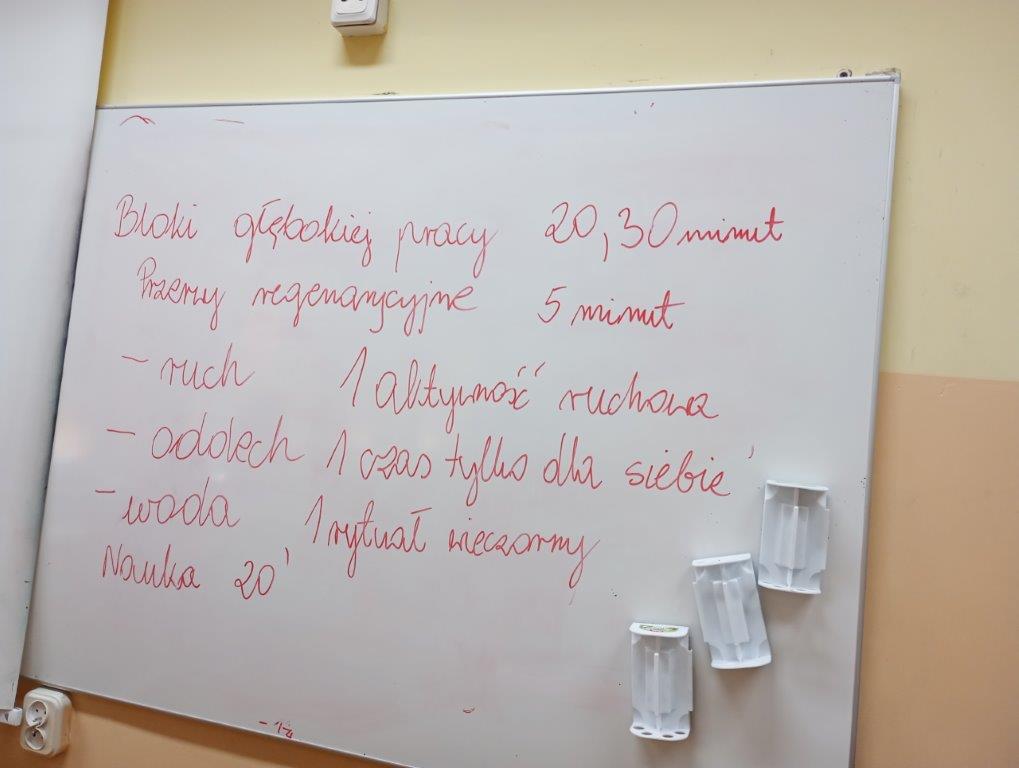 Bloki głębokiej pracy 20, 30 minut
Przerwy regenaracyjne 5 minut
- ruch 1 aktywność ruchowa
- oddech 1 czas tylko dla siebie
- woda 1 rytuał wieczorny
Nauka 20'